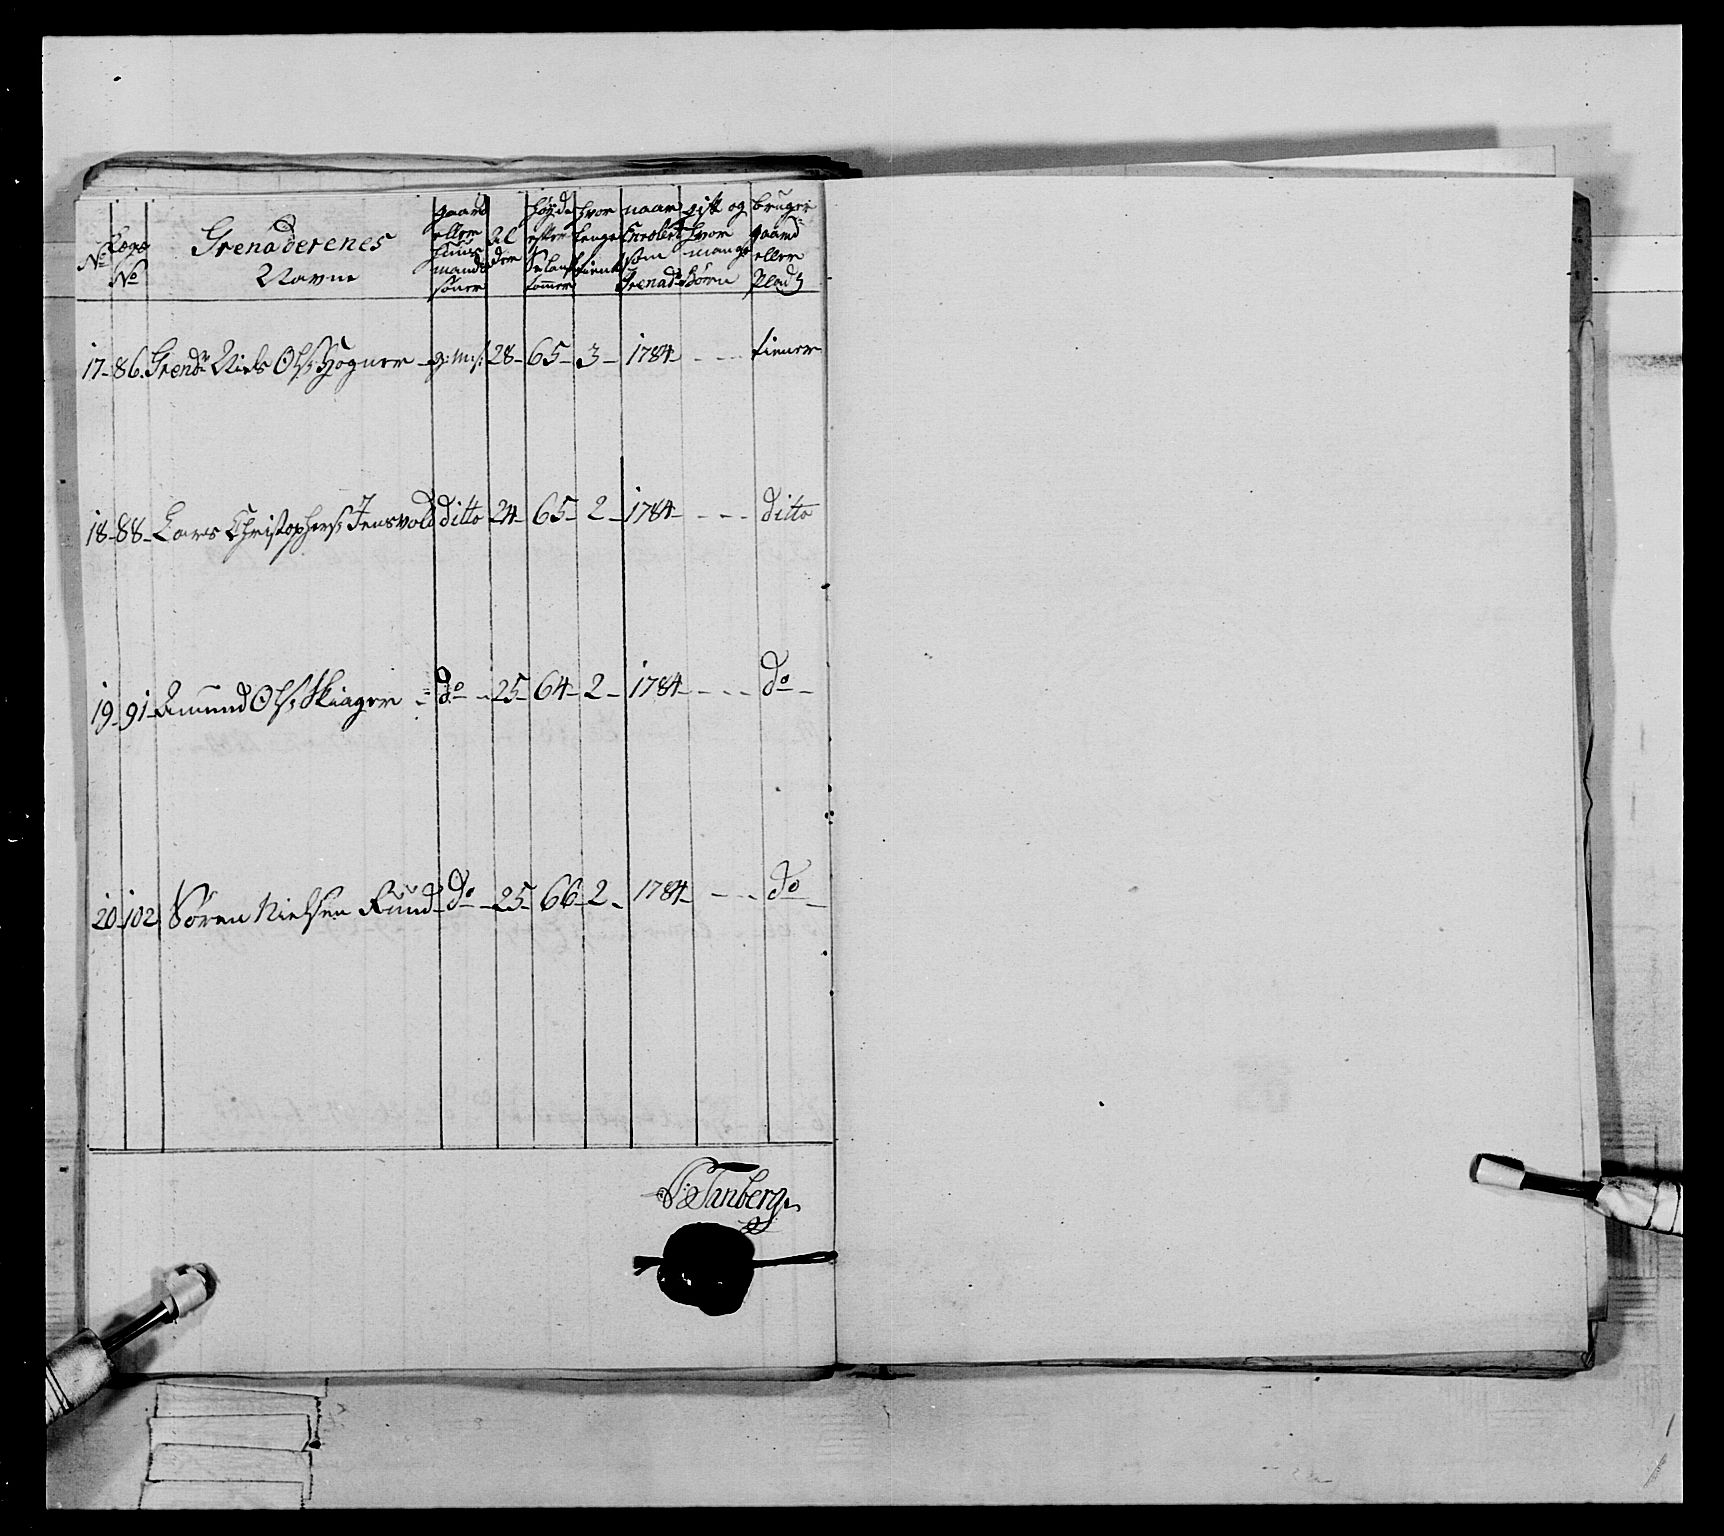 No
Lægs No
Grenaderenes Navne
gaard eller Huus mands sönner
Al der
Høyde efter Selans tommer
hvor lenge tient
naar Enrolert som Grenad:
gift og hvor mange Børn
bruger gaard eller Plads
17 - 86. Grendr Niels Ols: Hogner - g: m: s: 28 - 65 - 3 - 1784 - - - - tiener
18 - 88 - Lars Christophers: Jensvold ditto 24 - 65 - 2 - 1784 - - - - ditto
19 - 91 - Amund Ols: Skiager - do - 25 - 64 - 2 - 1784 - - - - do -
20 - 102 Søren Nielsen Rund - do - 25 - 66 - 2 - 1784 - - - - do -
Tanberg